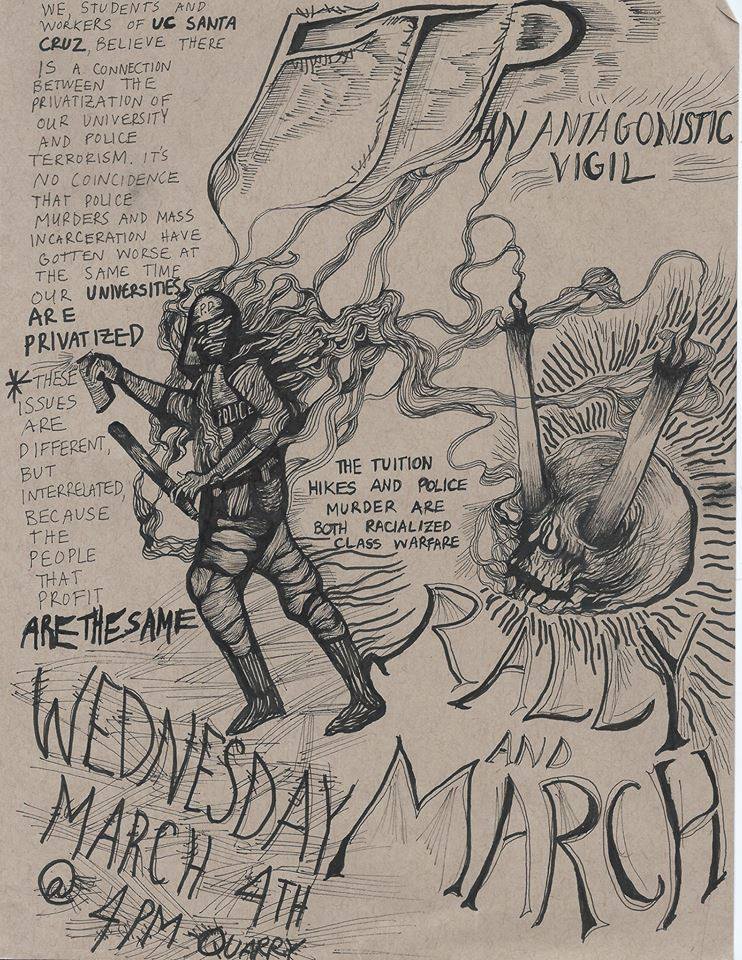 WE, STUDENTS AND
WORKERS OF UC SANTA
CRUZ, BELIEVE THERE
IS A CONNECTION
BETWEEN THE
PRIVATIZATION OF
OUR UNIVERSITY
AND POLICE
TERRORISM. IT'S
NO COINCIDENCE
THAT POLICE
MURDERS AND MASS
INCARCERATION HAVE
GOTTEN WORSE AT
THE SAME TIME
OUR UNIVERSITIES
ARE
PRIVATIZED
*THESE
ISSUES
ARE
DIFFERENT,
BUT
INTERRELATED,
BECAUSE
THE
PEOPLE
THAT
PROFIT
ARE THE SAME
FTP
AN ANTAGONISTIC
VIGIL
POLICE
THE TUITION
HIKES AND POLICE
MURDER ARE
BOTH RACIALIZED
CLASS WARFARE
RALLY
AND
MARCH
WEDNESDAY,
MARCH 4TH
@ 4PM QUARRY